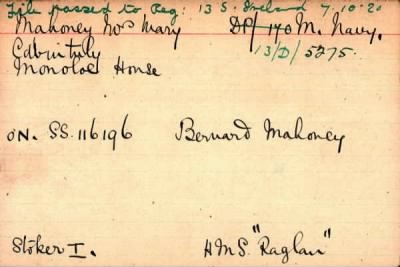 File passed to Reg: 13 S. Ireland 7.10.21
Mahoney Mrs Mary DP/170 M. Navy.
Cabinteely 13/D/5275.
Monoloe House
ON. SS.116196 Bernard Mahoney
Stoker I. H.M.S. "Raglan"